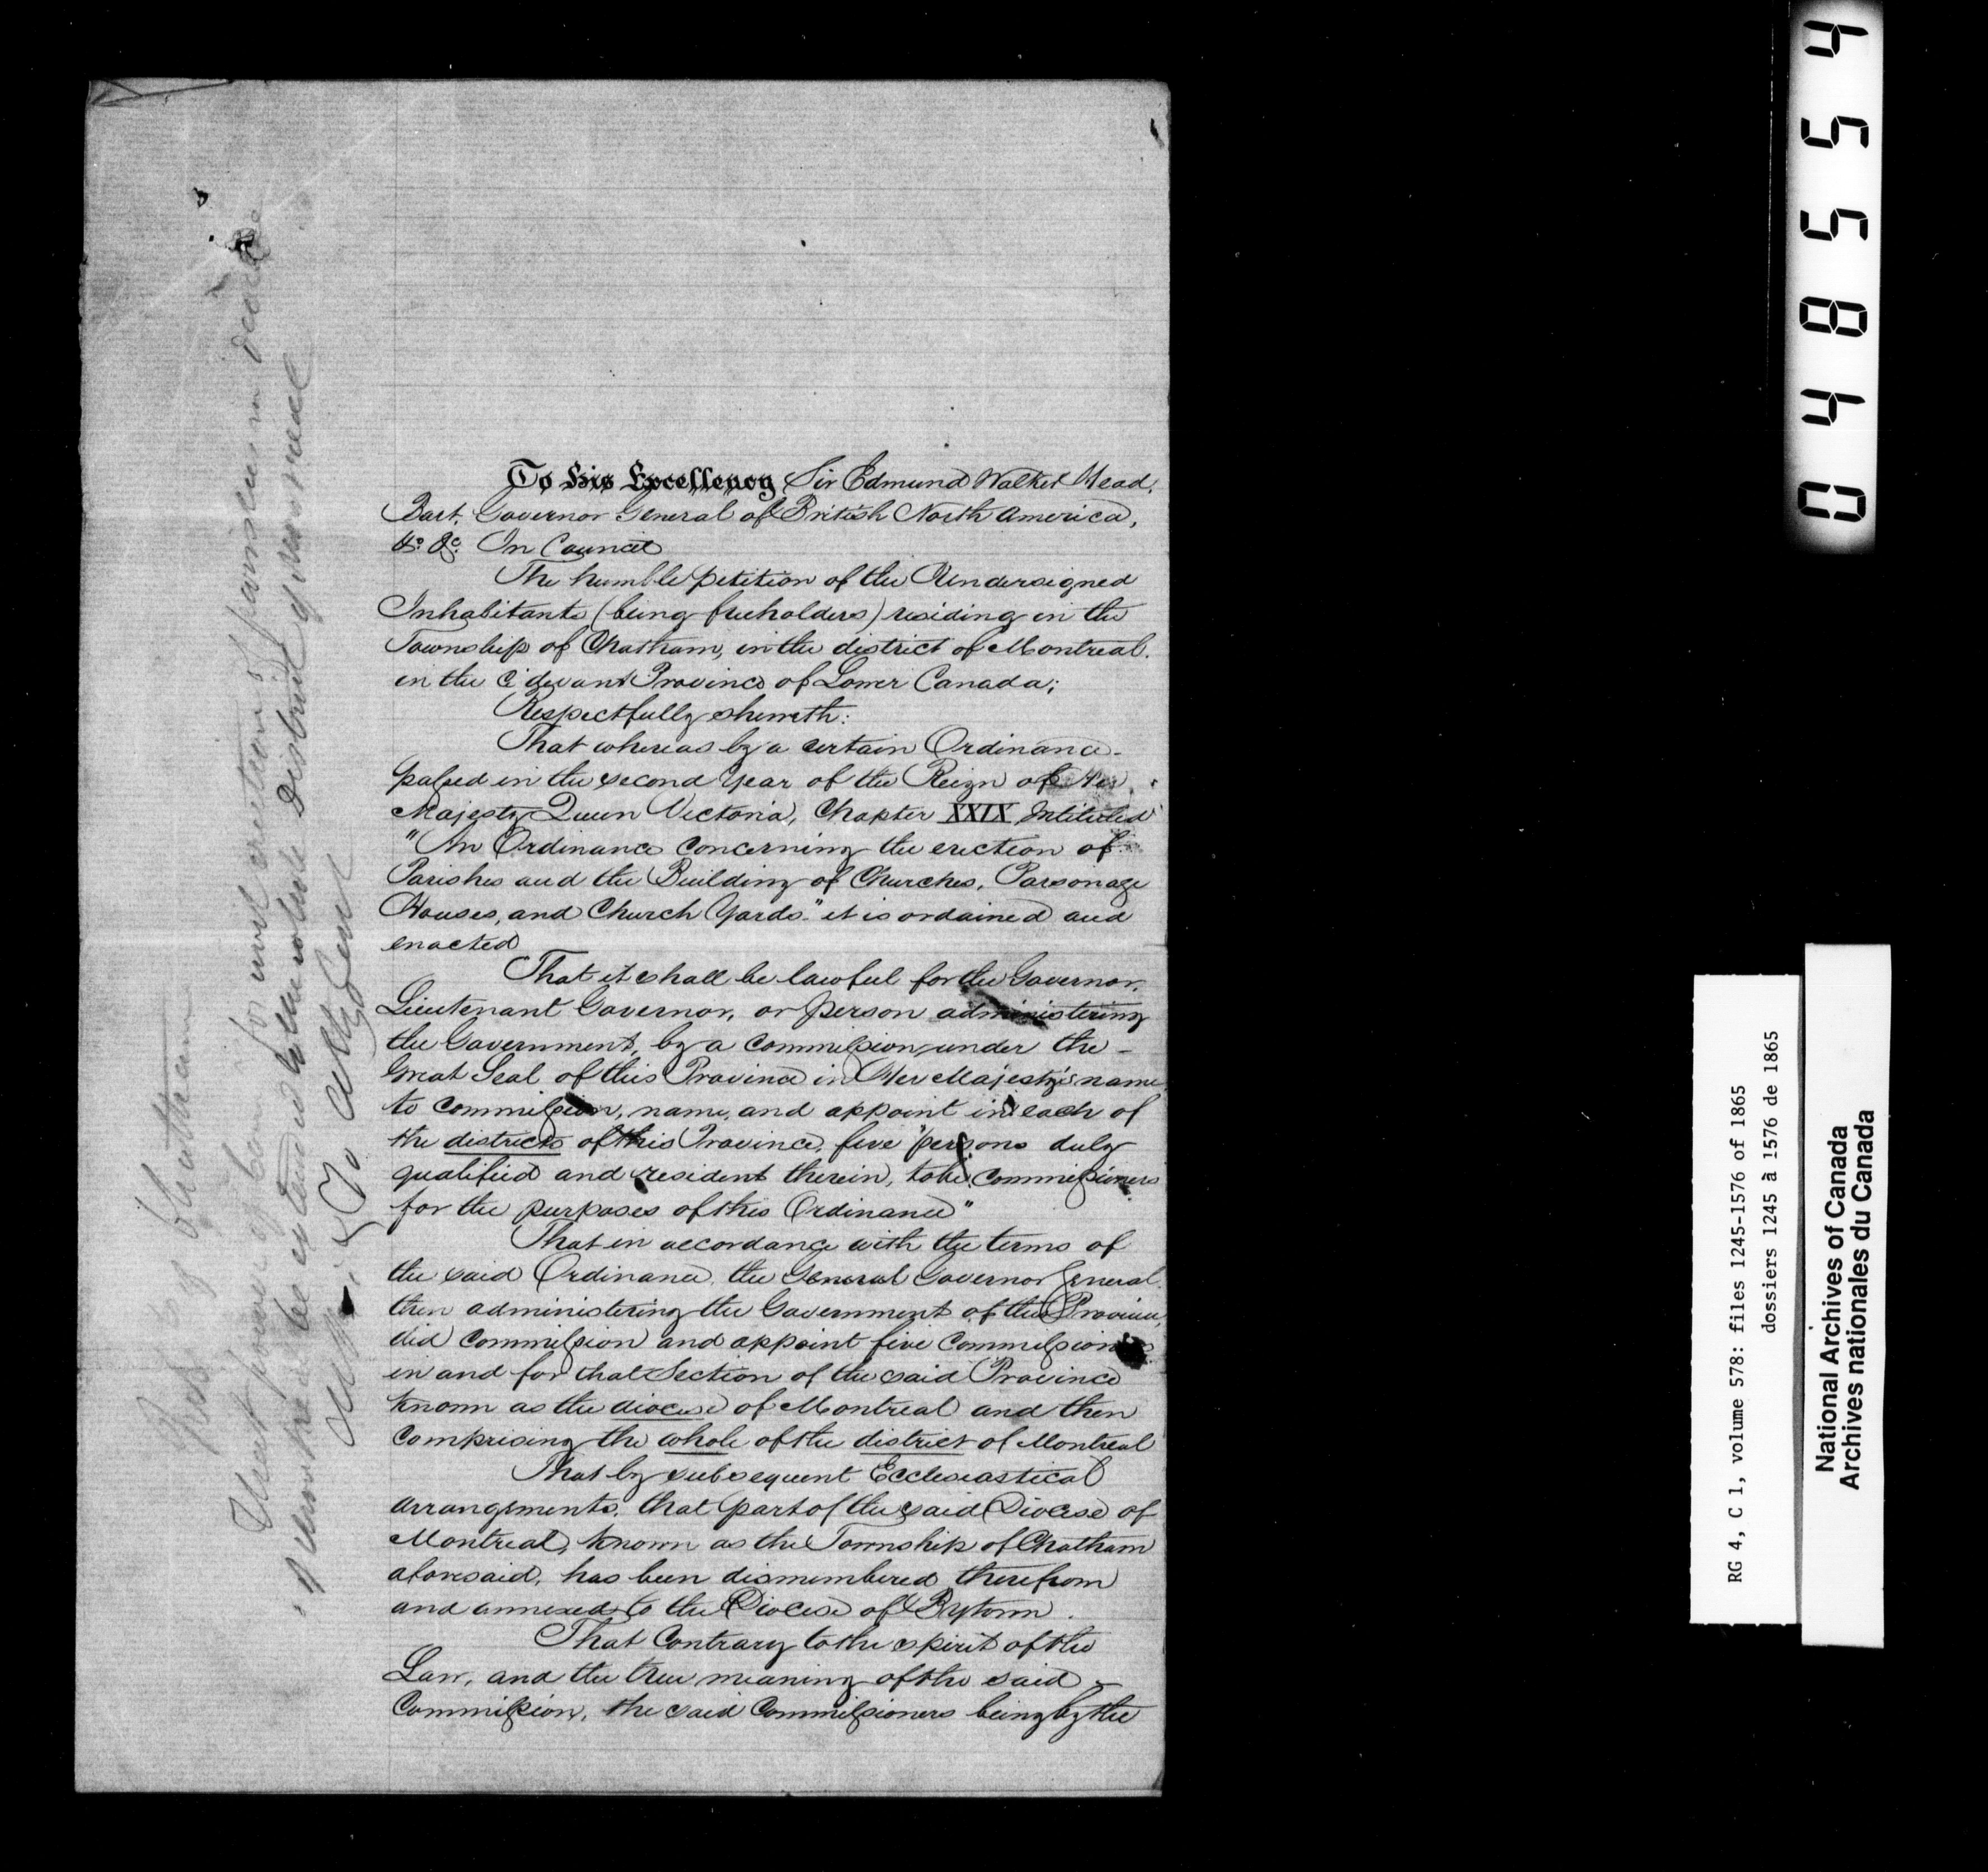 To His Excellency Sir Edmund Walker Head,
Bart. Governor General of British North America,
&c. &c. In Council
The humble petition of the Undersigned
Inhabitants (being freeholders) residing in the
Township of Chatham, in the district of Montreal.
in the Ci devant Province of Lower Canada;
Respectfully sheweth:
That whereas by a certain Ordinance
passed in the second Year of the Reign of Her
Majesty Queen Victoria, Chapter XXIX Intituled
"An Ordinance concerning the erection of
Parishes and the Building of Churches, Parsonage
Houses, and Church Yards." it is ordained and
enacted
That it shall be lawful for the Governor,
Lieutenant Governor, or person administering
the Government, by a commission under the
Great Seal of this Province in Her Majesty's name
to commission, name, and appoint in each of
the districts of this Province, five "persons duly
qualified and resident therein, to be Commissioners
for the purposes of this Ordinance"
That in accordance with the terms of
the said Ordinance, the General Governor General
then administering the Government of this Province,
did commission and appoint five Commissioners
in and for that Section of the said Province
known as the diocese of Montreal and then
comprising the whole of the district of Montreal
That by subsequent Ecclesiastical
arrangements, that part of the said Diocese of
Montreal, known as the Township of Chatham
aforesaid, has been dismembered therefrom
and annexed to the Diocese of Bytown.
That Contrary to the spirit of the
Law, and the true meaning of the said
Commission, the said Commissioners being by the
of Chatham
for civil erection of parishes in
Montreal be extended to the whole District of Montreal
To Atty Genl
048554
RG 4, C 1, volume 578: files 1245-1576 of 1865
dossiers 1245 à 1576 de 1865
National Archives of Canada
Archives nationales du Canada